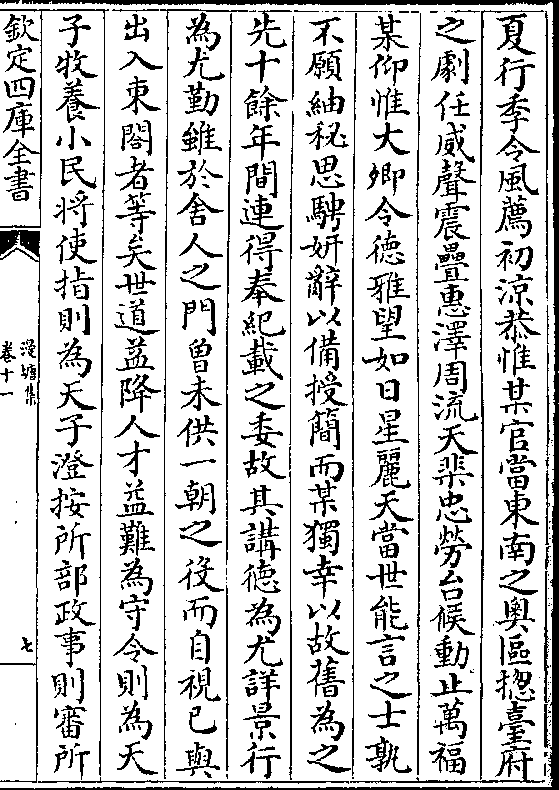 夏行季令風薦初涼恭惟某官當東南之奧區揔臺府
之劇任威聲震疊惠澤周流天棐忠勞台候動止萬福
某仰惟大卿令德雅望如日星麗天當世能言之士孰
不願紬秘思騁妍辭以備授簡而某獨幸以故舊為之
先十餘年間連得奉紀載之委故其講德為尤詳景行
為尤勤雖於舍人之門曾未供一朝之役而自視已與
出入東閤者等矣世道益降人才益難為守令則為天
子牧養小民將使指則為天子澄按所部政事則審所
欽定四庫全書
漫塘集
卷十一
七